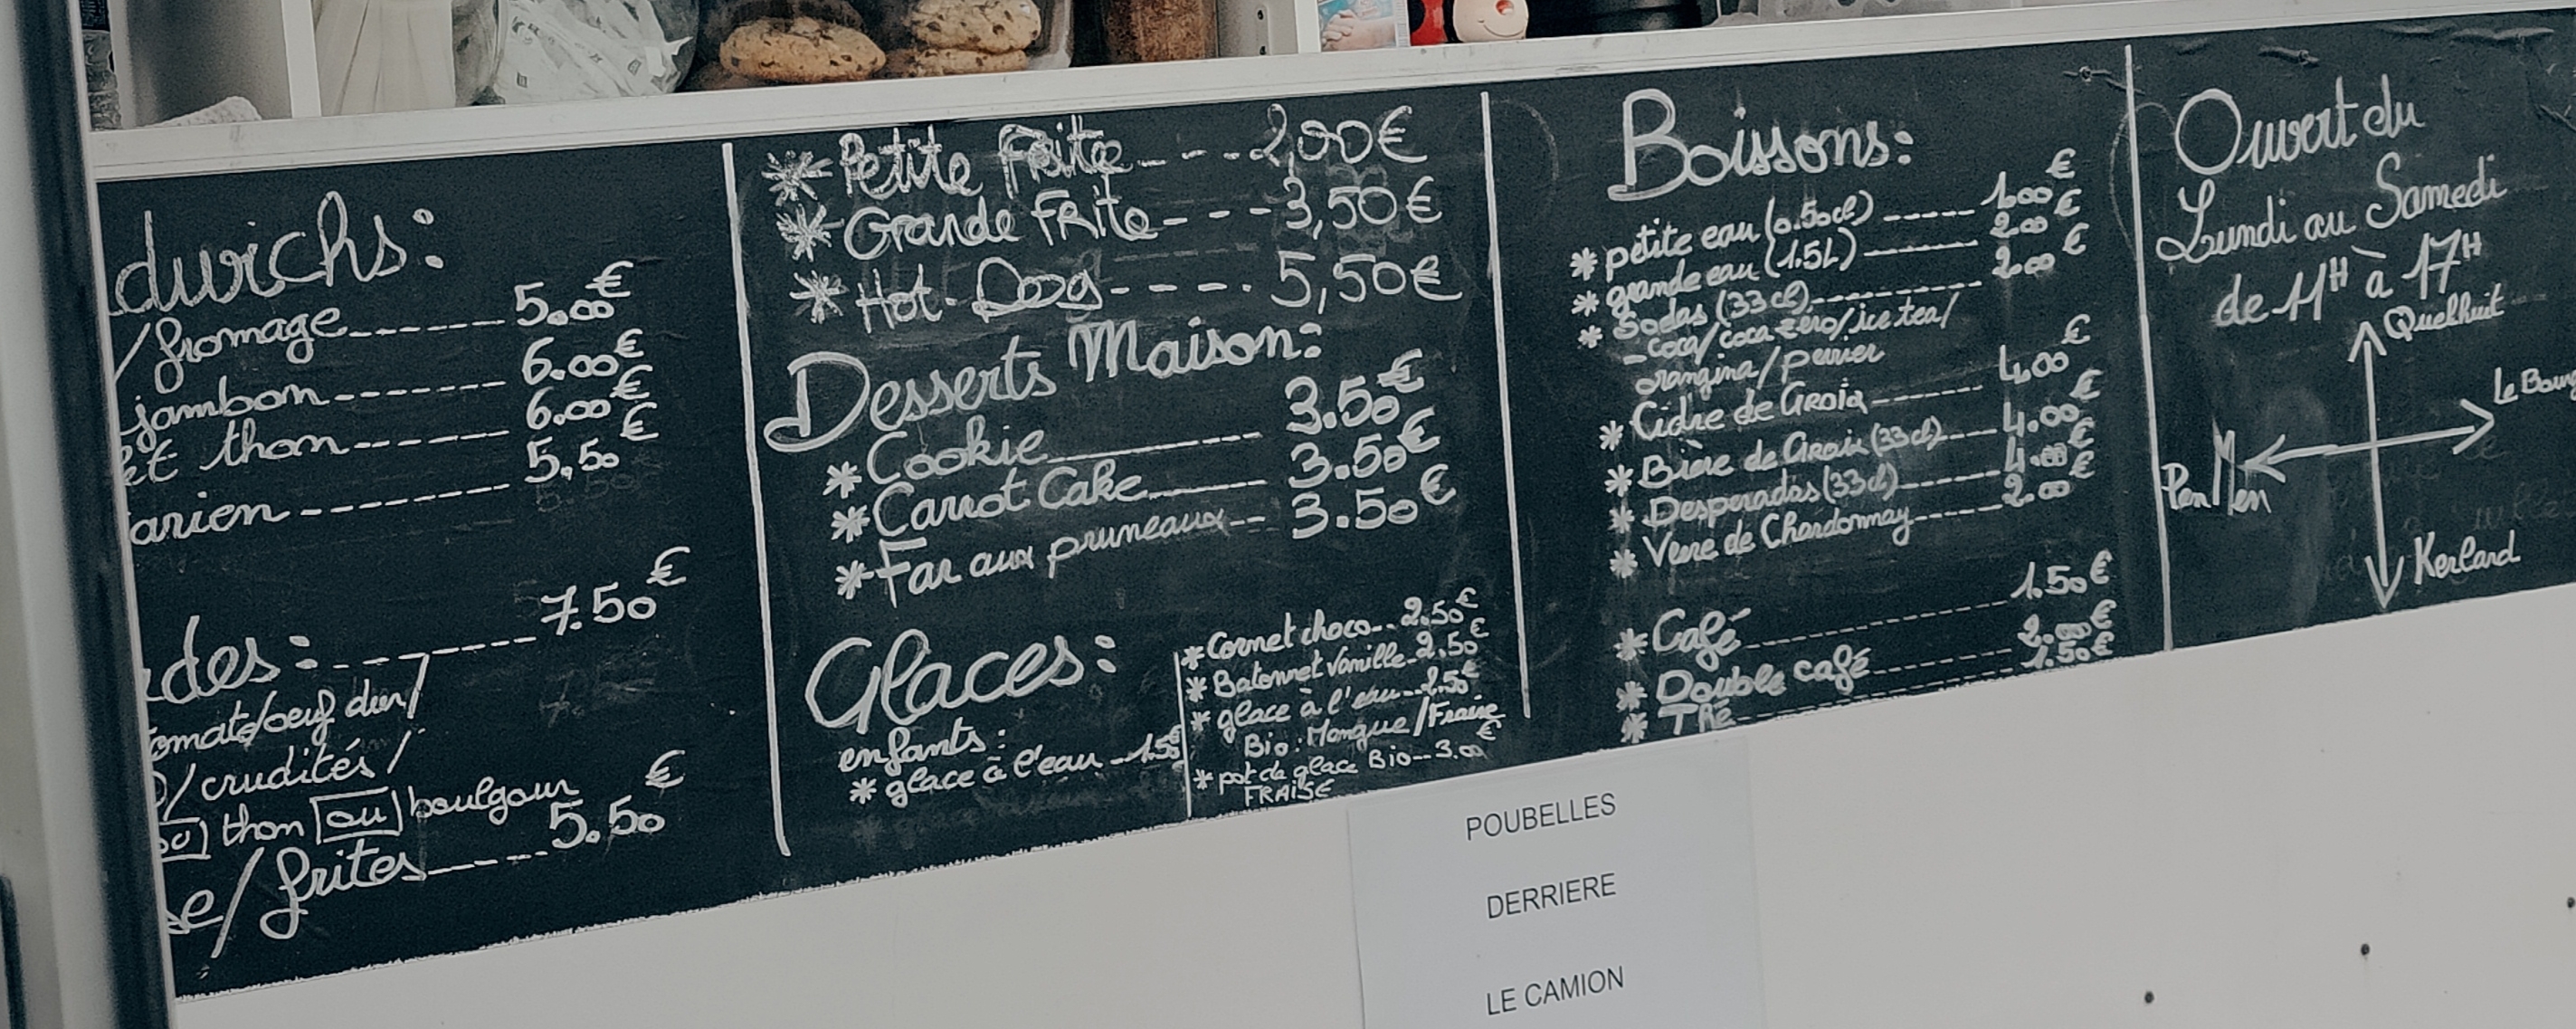 dwichs:
/fromage------ 5.00€
jambon------ 6.00€
et thon------ 6.00€
arien------ 5,50€
des:------7.50€
omate/oeuf dur/
/crudités/
ou thon ou boulgour
se/frites-----5.50€
* Petite Frite---2,00€
* Grande Frite---3,50€
* Hot-Dog----5,50€
Desserts Maison:
* Cookie------ 3.50€
* Carrot Cake----- 3.50€
* Far aux pruneaux-- 3.50€
Glaces:
enfants:
* glace à l'eau--1.50€
* Cornet choco--2.50€
* Batonnet Vanille-2.50€
* glace à l'eau--2.50€
Bio: Mangue/Fraise
* pot de glace Bio--3.00€
FRAISE
Boissons:
* petite eau (0.50cl)-----1.00€
* grande eau (1.5L)------2.00€
* Sodas (33cl)----------2.00€
-coca/coca zéro/ice tea/
orangina/perrier
* Cidre de Groix------4,00€
* Bière de Groix (33cl)---4.00€
* Desperados (33cl)-----4.00€
* Verre de Chardonnay-----2.00€
* Café-----------1.50€
* Double café--------2.00€
* Thé-----------1.50€
Ouvert du
Lundi au Samedi
de 11H à 17H
Quelhuit
Le Bourg
Pen Men
Kerlard
POUBELLES
DERRIERE
LE CAMION